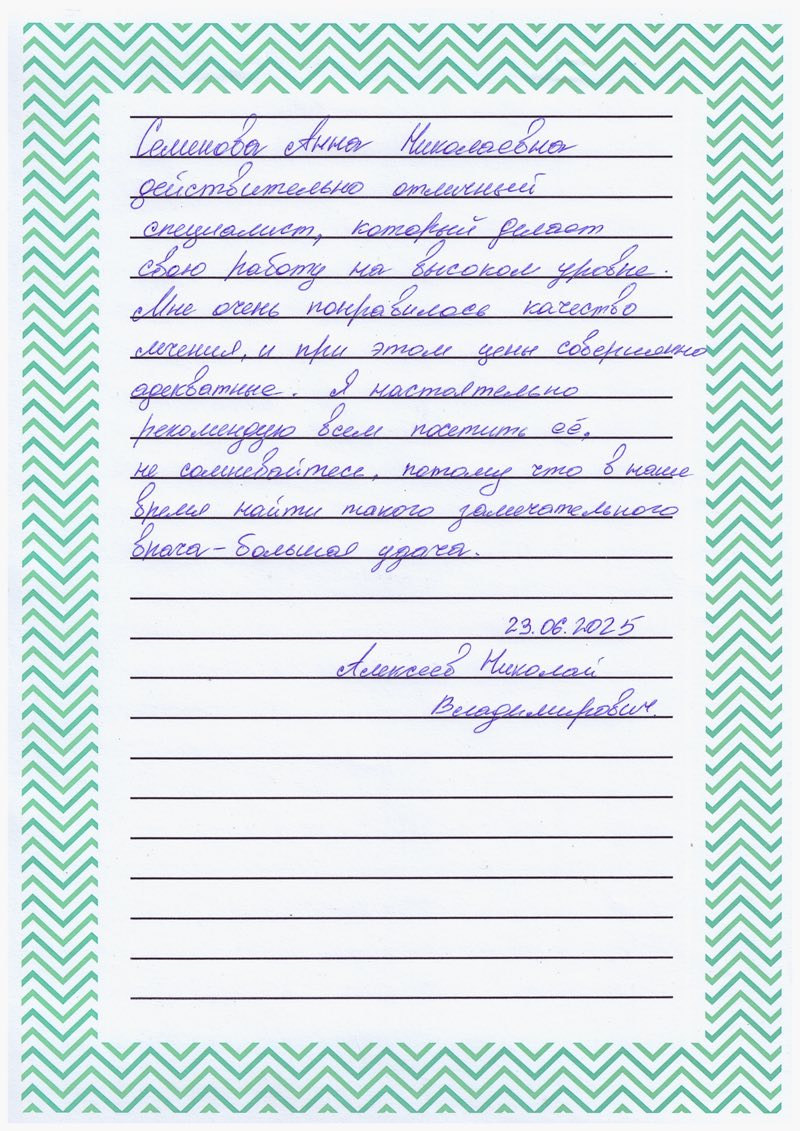 Семенова Анна Николаевна
действительно отличный
специалист, который делает
свою работу на высоком уровне.
Мне очень понравилось качество
лечения, и при этом цены совершенно
адекватные. Я настоятельно
рекомендую всем посетить её,
не сомневайтесь, потому что в наше
время найти такого замечательного
врача – большая удача.
23.06.2025
Алексеев Николай
Владимирович.